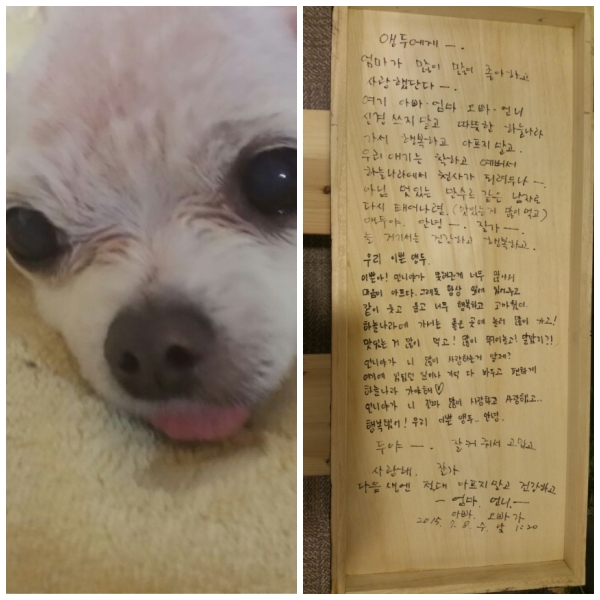 앵두에게 ㅡ.
엄마가 많이 많이 좋아하고
사랑했단다 ㅡ.
여기 아빠·엄마 오빠·언니
신경 쓰지 말고 따뜻한 하늘나라
가서 행복하고 아프지 말고.
우리 애기는 착하고 예뻐서
하늘나라에서 천사가 되려무나 ㅡ.
아님 멋있는 만수르 같은 남자로
다시 태어나렴. (맛있는거 많이 먹고)
앵두야. 안녕 ㅡ. 잘가 ㅡ.
늘 거기서는 건강하고 행복하고.
우리 이쁜 앵두.
이쁜아! 언니야가 못해준게 너무 많아서
마음이 아프다. 그래도 항상 옆에 있어주고
같이 웃고 울고 너무 행복하고 고마웠어.
하늘나라에 가서는 좋은 곳에 놀러 많이 가고!
맛있는 거 많이 먹고! 많이 뛰어놀고! 알았지?!
언니야가 니 많이 사랑하는거 알제?
여기에 있었던 일이나 기억 다 비우고 편하게
하늘나라 가야해♡
언니야가 니 진짜 많이 사랑하고 사랑했고..
행복했어! 우리 이쁜 앵두.. 안녕.
두야 ㅡ. 잘 커줘서 고맙고
사랑해. 잘가
다음 생엔 절대 아프지 말고 건강하고
ㅡ 엄마. 언니. ㅡ
아빠. 오빠가
2015. 7. 8. 수. 낮 1:20